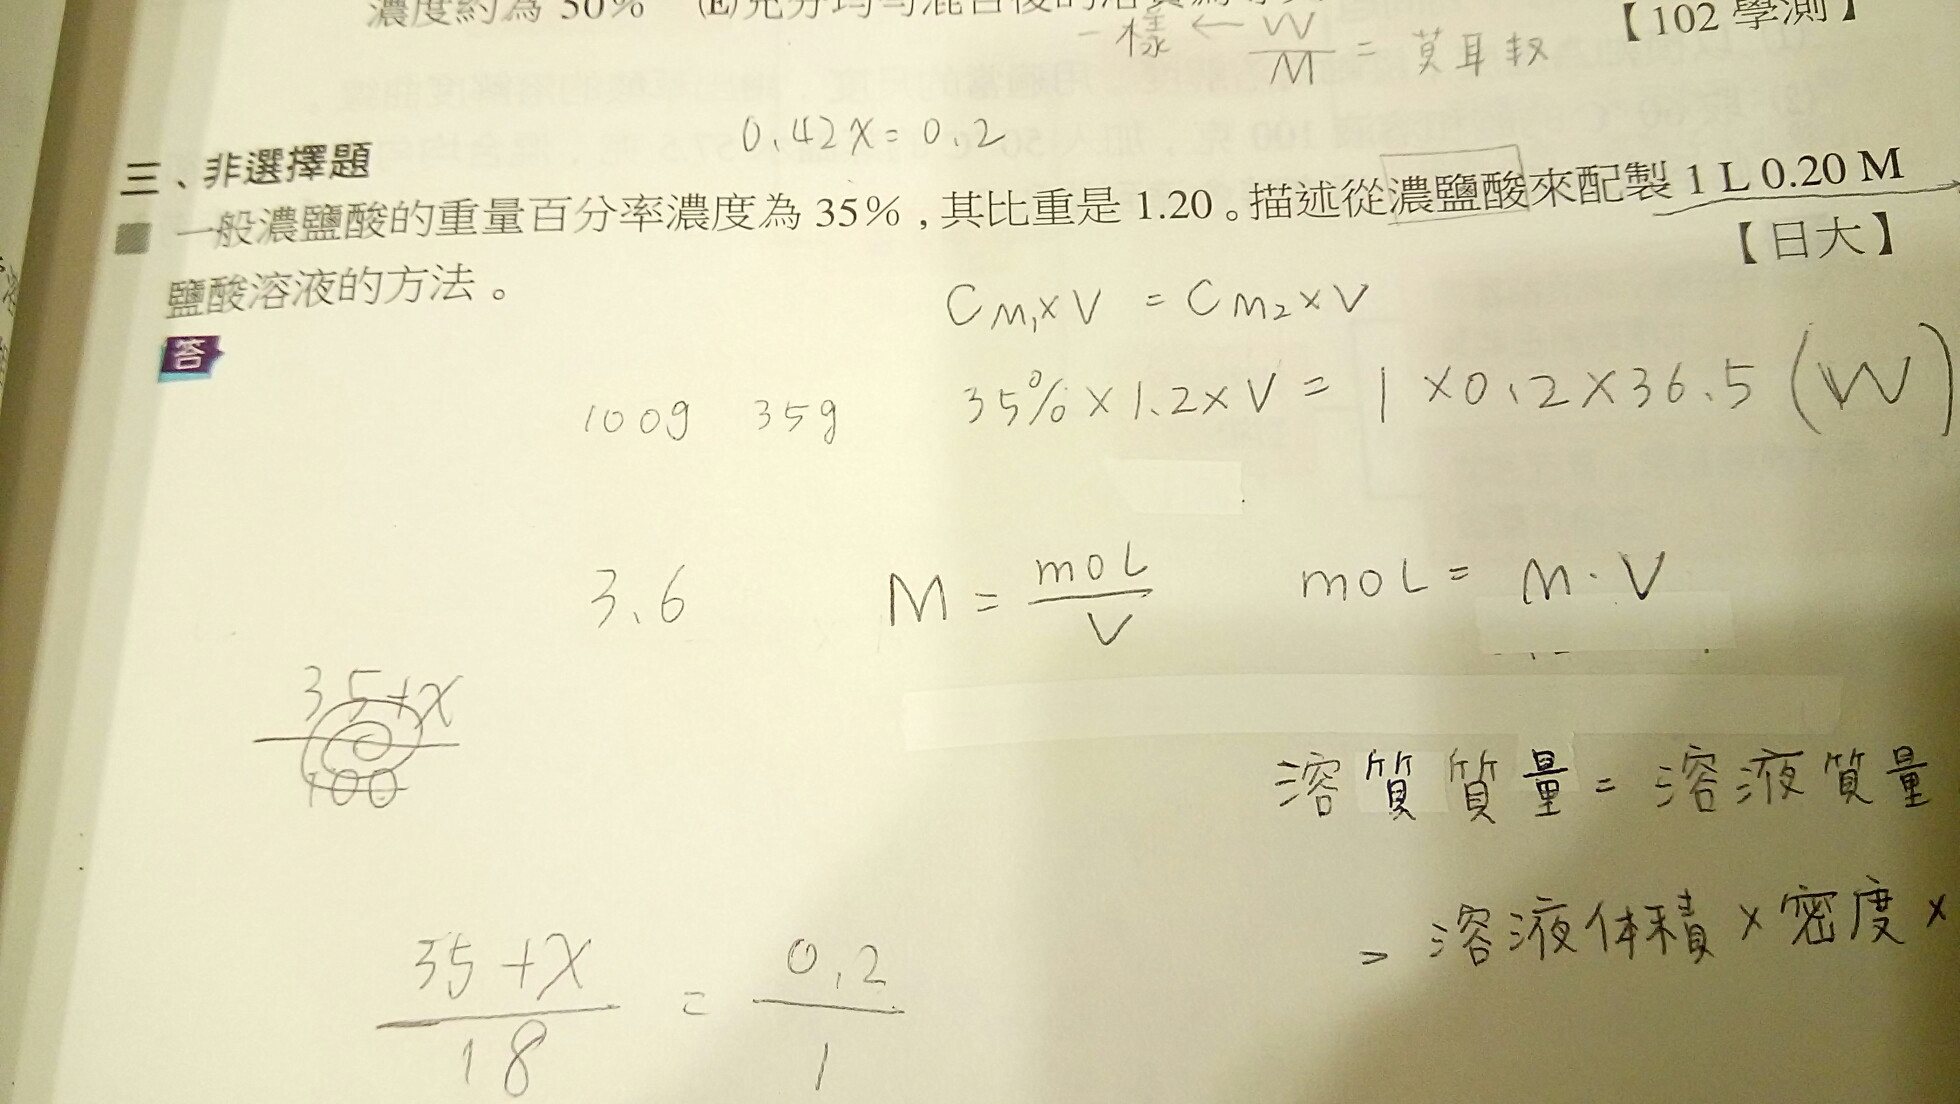 濃度約為 50%
【102 學測】
一樣 ← W/M = 莫耳數
0.42x = 0.2
三、非選擇題
一般濃鹽酸的重量百分率濃度為 35%，其比重是 1.20。描述從濃鹽酸來配製 1 L 0.20 M
鹽酸溶液的方法。
【日大】
答
CM₁×V = CM₂×V
100g 35g
35%×1.2×V = 1×0.2×36.5 (W)
3.6
M = mol/V
mol = M·V
35+x/100
溶質質量 = 溶液質量
= 溶液体積×密度×
35+x/18 = 0.2/1